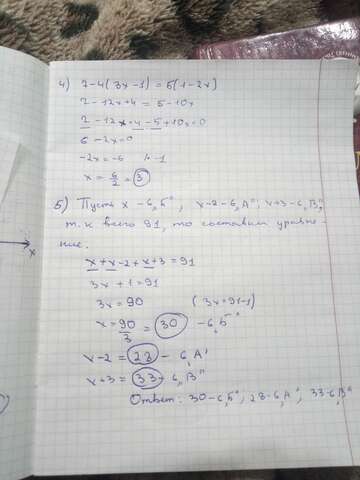 4) 2-4(3x-1)=5(1-2x)
2-12x+4=5-10x
2-12x-4-5+10x=0
6-2x=0
-2x=-6 |·-1
x=6/2=3
5) Пусть x - 6„Б", x-2-6„А", x+3-6„В",
т.к всего 91, то составим уравне-
ние.
x+x-2+x+3=91
3x+1=91
3x=90 (3x=91-1)
x=90/3=30 -6„Б"
x-2=28-6„А"
x+3=33-6„В"
Ответ: 30-6„Б", 28-6„А", 33-6„В"
x